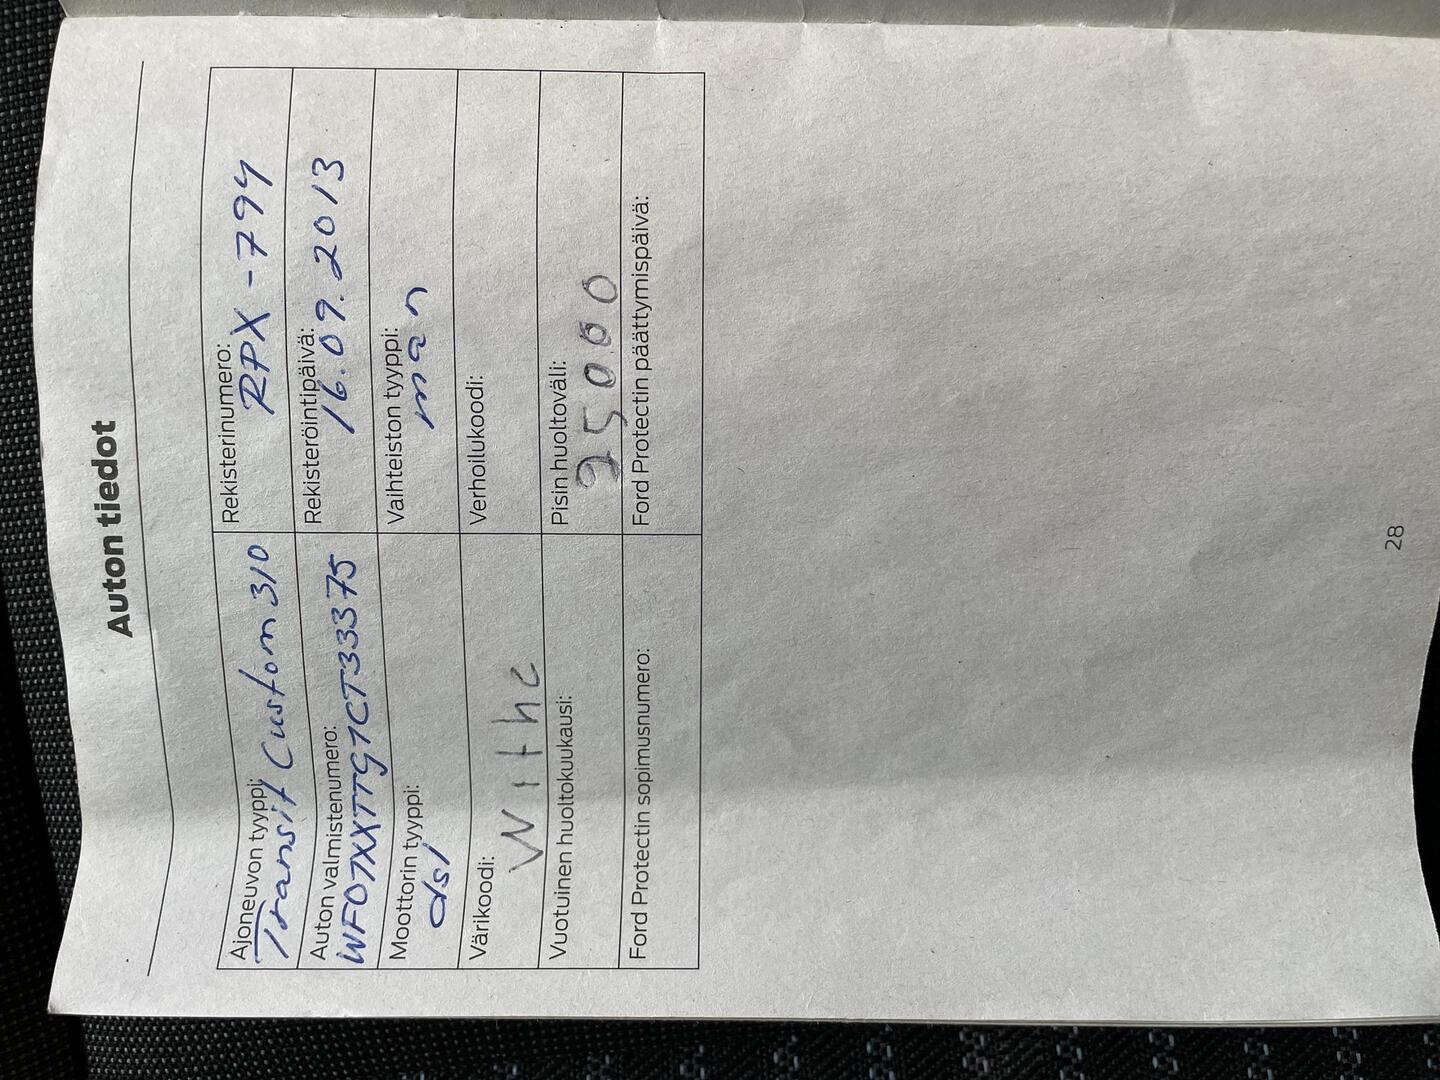 Auton tiedot
Ajoneuvon tyyppi: Rekisterinumero:
Transit Custom 310 RPX-794
Auton valmistenumero: Rekisteröintipäivä:
WF07XXTTG7CT33375 16.09.2013
Moottorin tyyppi: Vaihteiston tyyppi:
dsl man
Värikoodi: Verhoilukoodi:
Withe
Vuotuinen huoltokuukausi: Pisin huoltoväli:
25000
Ford Protectin sopimusnumero: Ford Protectin päättymispäivä:
28